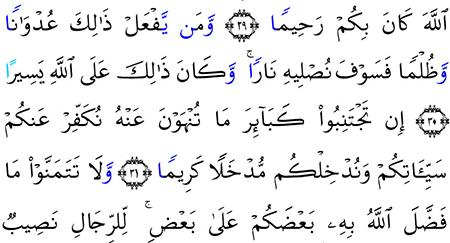 ٱللَّهَ كَانَ بِكُمْ رَحِيمًا ﴿٢٩﴾ وَمَن يَّفْعَلْ ذَٰلِكَ عُدْوَٰنًا
وَّظُلْمًا فَسَوْفَ نُصْلِيهِ نَارًا ۚ وَّكَانَ ذَٰلِكَ عَلَى ٱللَّهِ يَسِيرًا
﴿٣٠﴾ إِن تَجْتَنِبُوا۟ كَبَآئِرَ مَا تُنْهَوْنَ عَنْهُ نُكَفِّرْ عَنكُمْ
سَيِّـَٔاتِكُمْ وَنُدْخِلْكُم مُّدْخَلًا كَرِيمًا ﴿٣١﴾ وَّلَا تَتَمَنَّوْا۟ مَا
فَضَّلَ ٱللَّهُ بِهِۦ بَعْضَكُمْ عَلَىٰ بَعْضٍ ۚ لِّلرِّجَالِ نَصِيبٌ